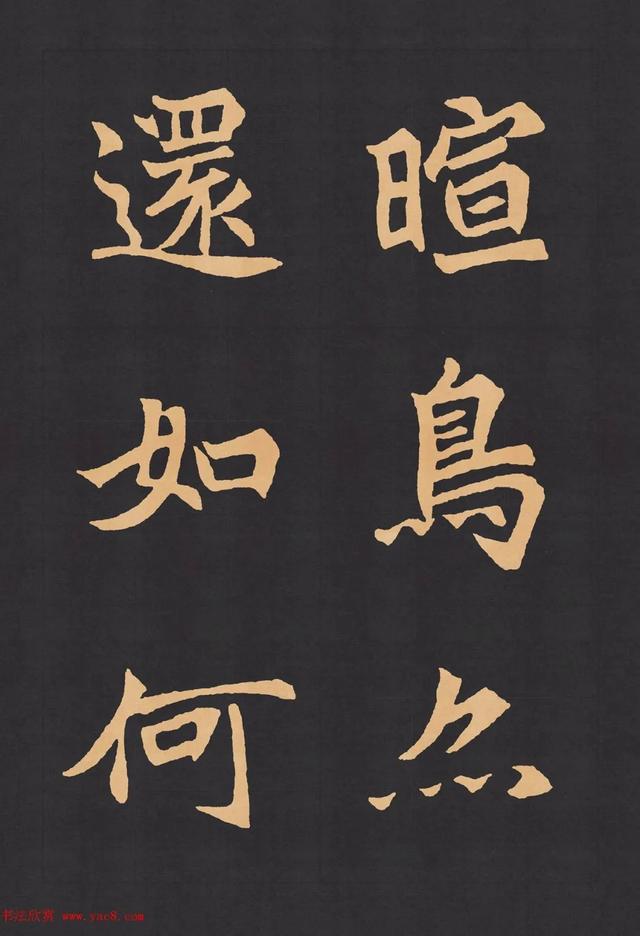 暄鳥
還如何
书法欣赏 www.yac8.com